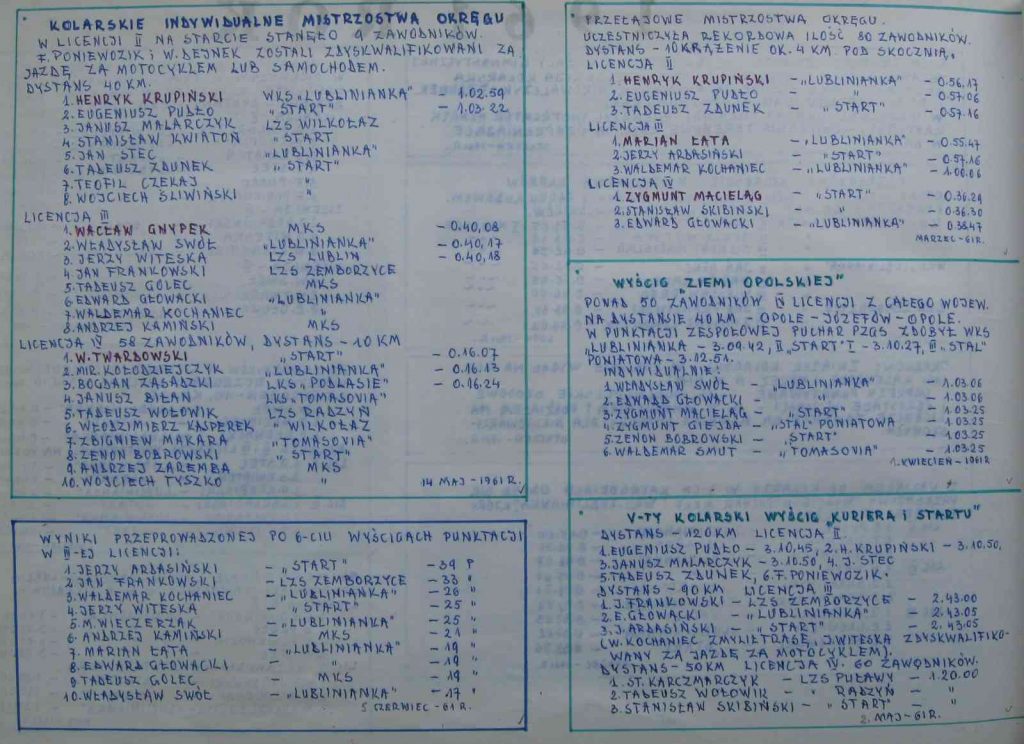 KOLARSKIE INDYWIDUALNE MISTRZOSTWA OKRĘGU
W LICENCJI II NA STARCIE STANĘŁO 9 ZAWODNIKÓW.
F. PONIEWOZIK i W. DEJNEK ZOSTALI ZDYSKWALIFIKOWANI ZA
JAZDĘ ZA MOTOCYKLEM LUB SAMOCHODEM.
DYSTANS 40 KM.
1. HENRYK KRUPIŃSKI WKS „LUBLINIANKA" 1.02.59
2. EUGENIUSZ PUDŁO „START" - 1.03.22
3. JANUSZ MALARCZYK LZS WILKOŁAZ
4. STANISŁAW KWIATOŃ „START
5. JAN STEC „LUBLINIANKA"
6. TADEUSZ ZDUNEK „START"
7. TEOFIL CZEKAJ "
8. WOJCIECH ŚLIWIŃSKI "
LICENCJA III
1. WACŁAW GNYPEK MKS - 0.40,08
2. WŁADYSŁAW SWÓŁ „LUBLINIANKA" - 0.40,17
3. JERZY WITESKA LZS LUBLIN - 0.40,18
4. JAN FRANKOWSKI LZS ZEMBORZYCE
5. TADEUSZ GOLEC MKS
6. EDWARD GŁOWACKI „LUBLINIANKA"
7. WALDEMAR KOCHANIEC "
8. ANDRZEJ KAMIŃSKI MKS
LICENCJA IV 58 ZAWODNIKÓW, DYSTANS - 10 KM
1. W. TWARDOWSKI „START" - 0.16.07
2. MIR. KOŁODZIEJCZYK „LUBLINIANKA" - 0.16.13
3. BOGDAN ZASADZKI LKS „PODLASIE" - 0.16.24
4. JANUSZ BILAN LKS „TOMASOVIA"
5. TADEUSZ WOŁOWIK LZS RADZYŃ
6. WŁODZIMIERZ KASPEREK " WILKOŁAZ
7. ZBIGNIEW MAKARA „TOMASOVIA"
8. ZENON BOBROWSKI „START"
9. ANDRZEJ ZAREMBA MKS
10. WOJCIECH TYSZKO "
14 MAJ - 1961 R.
WYNIKI PRZEPROWADZONEJ PO 6-CIU WYŚCIGACH PUNKTACJI
W III-EJ LICENCJI:
1. JERZY ARBASIŃSKI - „START" - 39 P
2. JAN FRANKOWSKI - LZS ZEMBORZYCE - 33 "
3. WALDEMAR KOCHANIEC - „LUBLINIANKA" - 26 "
4. JERZY WITESKA - „START" - 25 "
5. M. WIECZERZAK - „LUBLINIANKA" - 25 "
6. ANDRZEJ KAMIŃSKI - MKS - 21 "
7. MARIAN ŁATA - „LUBLINIANKA" - 19 "
8. EDWARD GŁOWACKI - " - 19 "
9. TADEUSZ GOLEC - MKS - 19 "
10. WŁADYSŁAW SWÓŁ - „LUBLINIANKA" - 17 "
5 CZERWIEC - 61 R.
PRZEŁAJOWE MISTRZOSTWA OKRĘGU.
UCZESTNICZYŁA REKORDOWA ILOŚĆ 80 ZAWODNIKÓW.
DYSTANS - 10 KRĄŻENIE OK. 4 KM. POD SKOCZNIĄ.
LICENCJA II
1. HENRYK KRUPIŃSKI - „LUBLINIANKA" - 0.56,17
2. EUGENIUSZ PUDŁO - " - 0.57.06
3. TADEUSZ ZDUNEK - „START" - 0.57.16
LICENCJA III
1. MARIAN ŁATA - „LUBLINIANKA" - 0.55.47
2. JERZY ARBASIŃSKI - „START" - 0.57.16
3. WALDEMAR KOCHANIEC - „LUBLINIANKA" - 1.00.06
LICENCJA IV
1. ZYGMUNT MACIELĄG - „START" - 0.36.29
2. STANISŁAW SKIBIŃSKI - " - 0.36.30
3. EDWARD GŁOWACKI - „LUBLINIANKA" - 0.38.47
MARZEC - 61 R.
WYŚCIG „ZIEMI OPOLSKIEJ"
PONAD 50 ZAWODNIKÓW IV LICENCJI Z CAŁEGO WOJEW.
NA DYSTANSIE 40 KM - OPOLE - JÓZEFÓW - OPOLE.
W PUNKTACJI ZESPOŁOWEJ PUCHAR PZGS ZDOBYŁ WKS
„LUBLINIANKA - 3.09.42, II „START" I - 3.10.27, III „STAL"
PONIATOWA - 3.12.51.
INDYWIDUALNIE:
1. WŁADYSŁAW SWÓŁ - „LUBLINIANKA" - 1.03.06
2. EDWARD GŁOWACKI - " - 1.03.06
3. ZYGMUNT MACIELĄG - „START" - 1.03.25
4. ZYGMUNT GIEJBA - „STAL" PONIATOWA - 1.03.25
5. ZENON BOBROWSKI - „START" - 1.03.25
6. WALDEMAR SMUT - „TOMASOVIA" - 1.03.25
1. KWIECIEŃ - 1961 R
V-TY KOLARSKI WYŚCIG „KURIERA i STARTU"
DYSTANS - 120 KM LICENCJA II.
1. EUGENIUSZ PUDŁO - 3.10.45, 2. H. KRUPIŃSKI - 3.10.50,
3. JANUSZ MALARCZYK - 3.10.50, 4. J. STEC
5. TADEUSZ ZDUNEK, 6. F. PONIEWOZIK.
DYSTANS - 90 KM LICENCJA III
1. J. FRANKOWSKI - LZS ZEMBORZYCE - 2.43.00
2. E. GŁOWACKI - „LUBLINIANKA" - 2.43.05
3. J. ARBASIŃSKI - „START" - 2.43.05
(W. KOCHANIEC ZMYLIŁ TRASĘ, J. WITESKA ZDYSKWALIFIKO-
WANY ZA JAZDĘ ZA MOTOCYKLEM).
DYSTANS - 50 KM LICENCJA IV. 60 ZAWODNIKÓW.
1. ST. KARCZMARCZYK - LZS PUŁAWY - 1.20.00
2. TADEUSZ WOŁOWIK - " RADZYŃ - "
3. STANISŁAW SKIBIŃSKI - „START" - "
2. MAJ - 61 R.